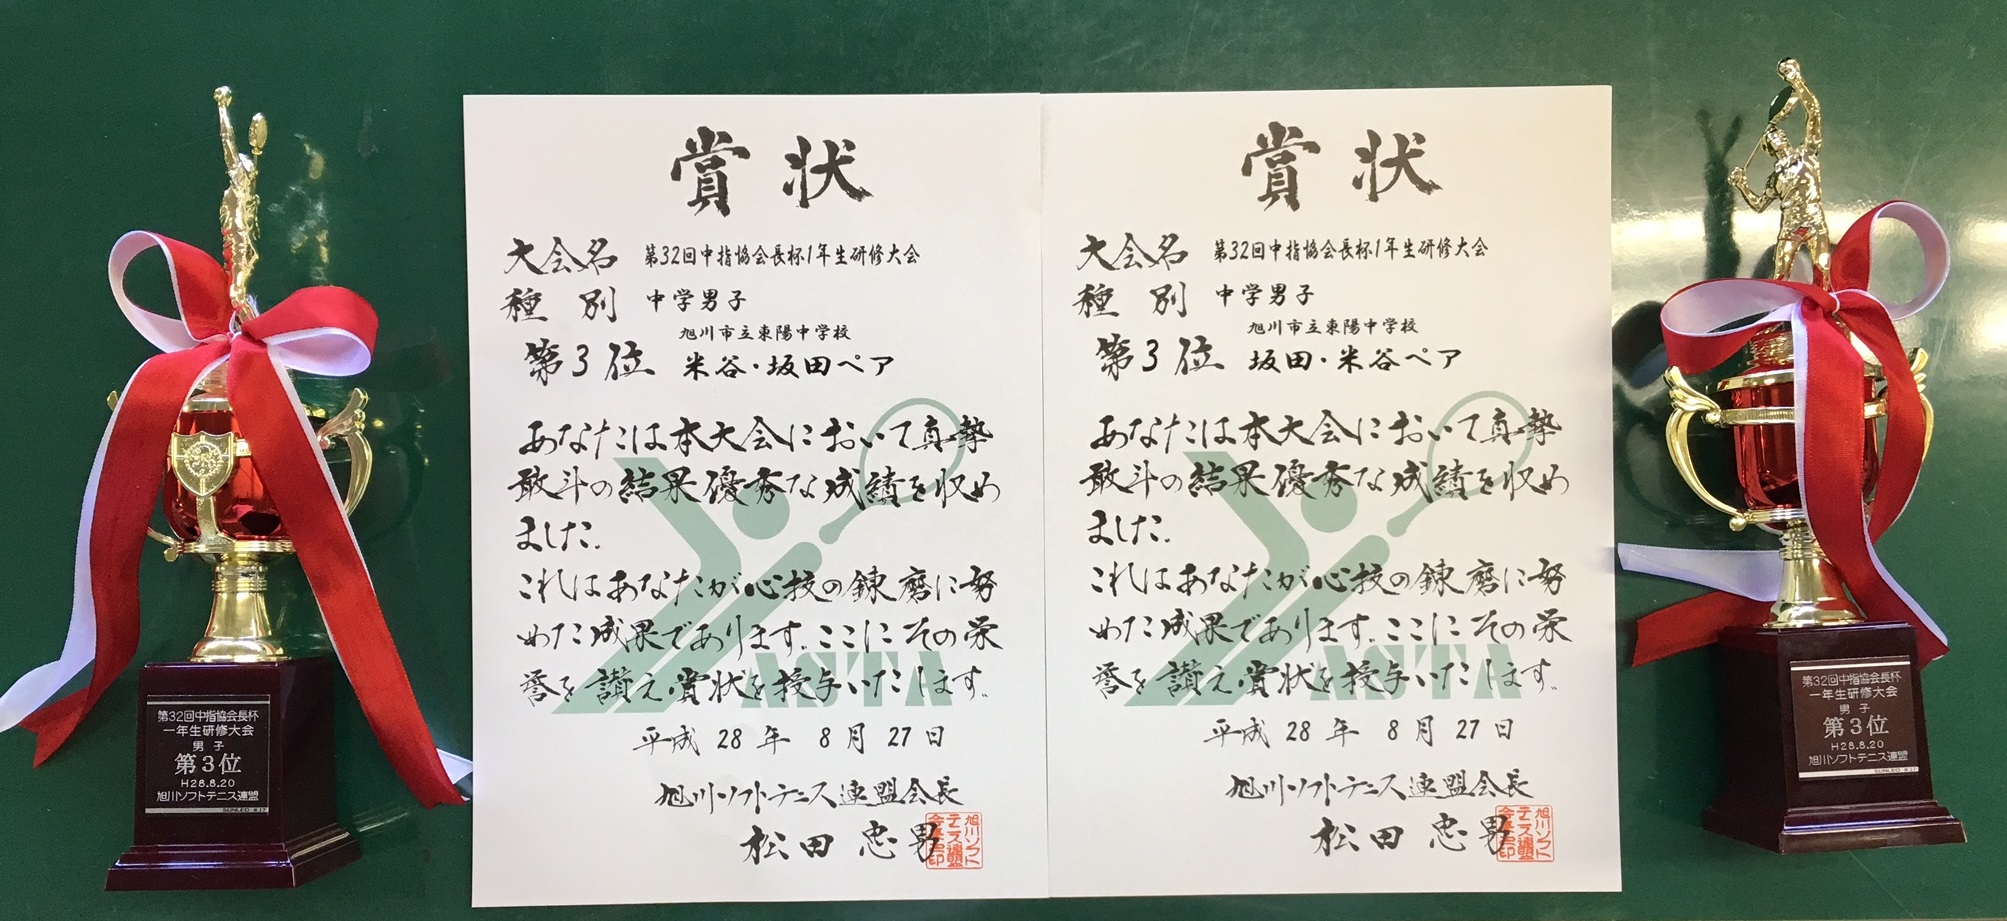 第32回中指協会長杯
一年生研修大会
男子
第3位
H28.8.20
旭川ソフトテニス連盟
賞状
大会名 第32回中指協会長杯1年生研修大会
種別 中学男子
旭川市立東陽中学校
第3位 米谷・坂田ペア
あなたは本大会において真摯
敢斗の結果優秀な成績を収め
ました。
これはあなたが心技の錬磨に努
めた成果であります。ここにその栄
誉を讃え賞状を授与いたします。
ASTA
平成28年8月27日
旭川ソフトテニス連盟会長
松田忠男
旭川ソフト
テニス連盟
会長之印
賞状
大会名 第32回中指協会長杯1年生研修大会
種別 中学男子
旭川市立東陽中学校
第3位 坂田・米谷ペア
あなたは本大会において真摯
敢斗の結果優秀な成績を収め
ました。
これはあなたが心技の錬磨に努
めた成果であります。ここにその栄
誉を讃え賞状を授与いたします。
ASTA
平成28年8月27日
旭川ソフトテニス連盟会長
松田忠男
旭川ソフト
テニス連盟
会長之印
第32回中指協会長杯
一年生研修大会
男子
第3位
H28.8.20
旭川ソフトテニス連盟